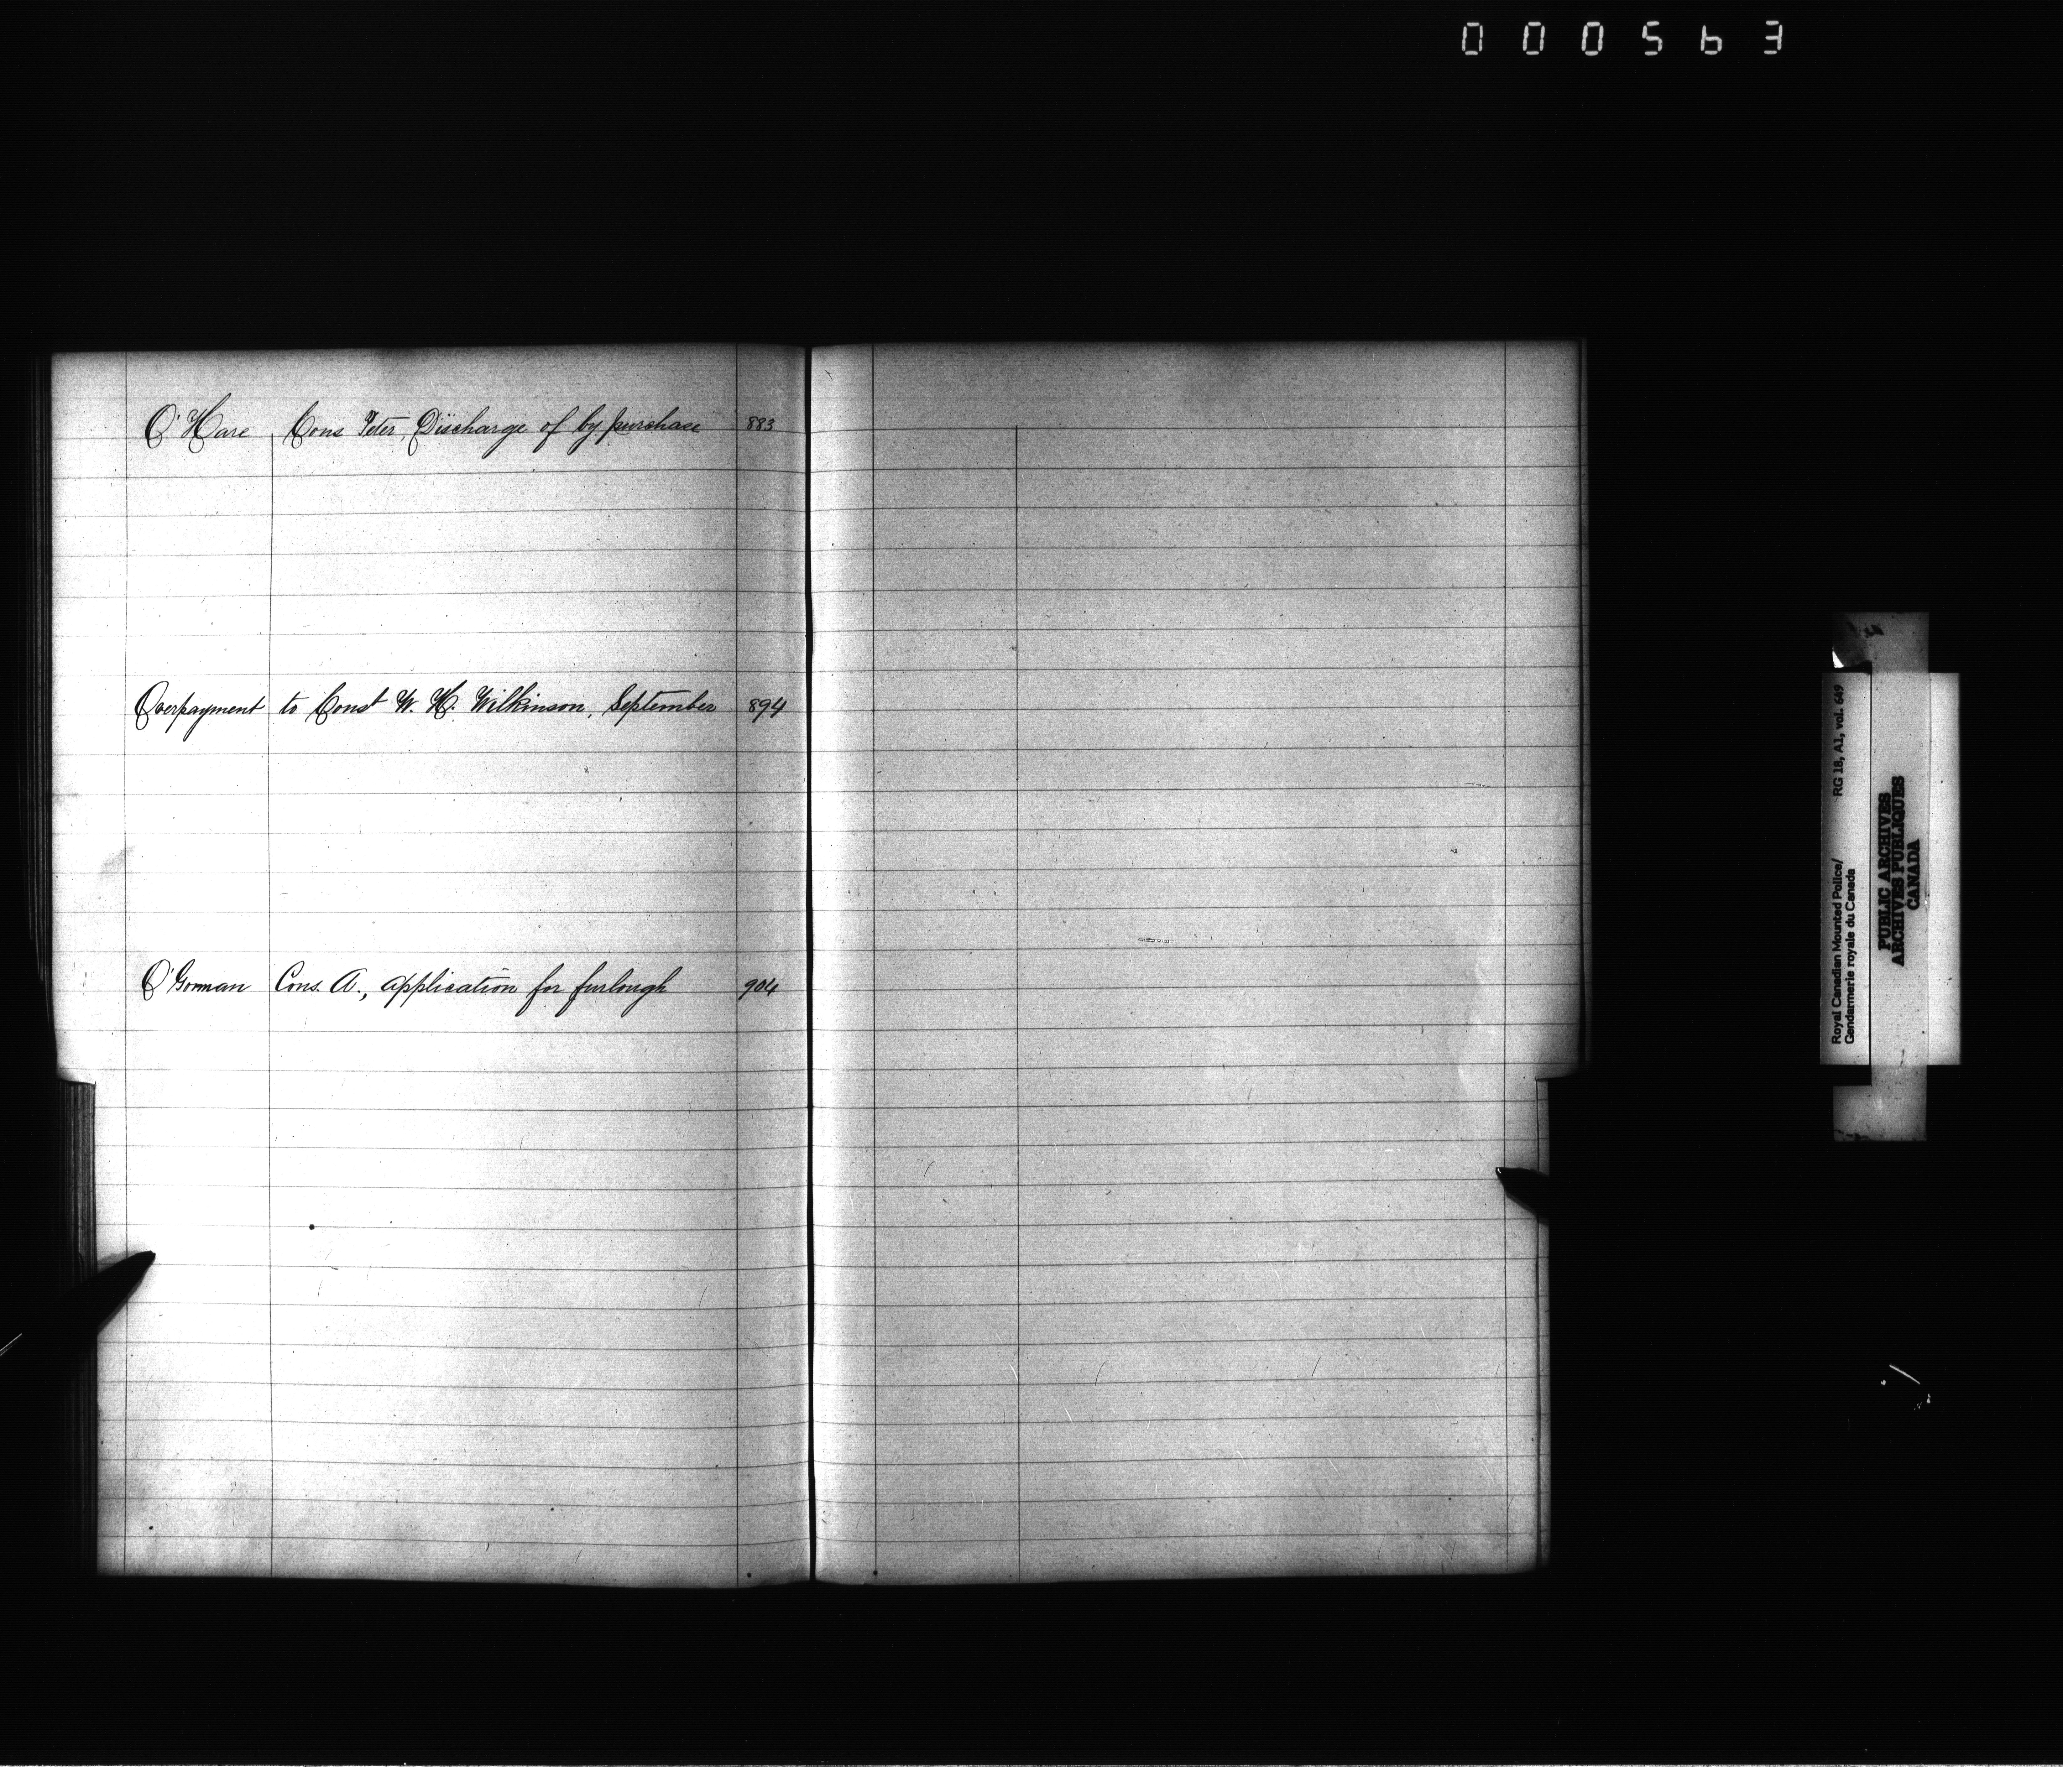 000563
O'Hare Cons Peter, Discharge of by purchase 883
Overpayment to Const W. H. Wilkinson, September 894
O'Gorman Cons. A., application for furlough 904
Royal Canadian Mounted Police/ RG 18, A1, vol. 649
Gendarmerie royale du Canada
PUBLIC ARCHIVES
ARCHIVES PUBLIQUES
CANADA